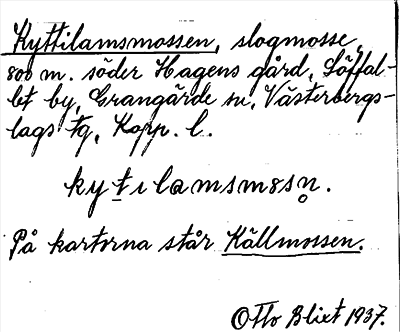 Kyttilamsmossen, slogmosse,
800 m. söder Hagens gård, Söffal-
let by, Grangärde sn, Västerbergs-
lags tg, Kopp. l.
kytilamsmɵsn̥.
På kartorna står Källmossen.
Otto Blixt 1937.